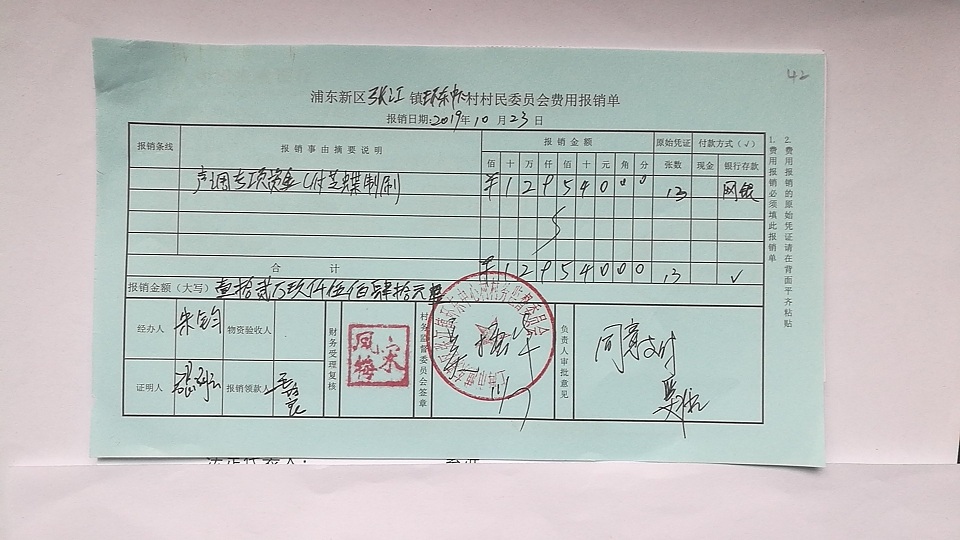 42
浦东新区张江镇环东中心村村民委员会费用报销单
报销日期:2019年10月23日
报销条线 报销事由摘要说明 报销金额 原始凭证 付款方式(√)
佰 十 万 仟 佰 十 元 角 分 张数 现金 银行存款
专项资金(付芝蝶制刷 ¥1 2 9 5 4 0 0 0 13 网银
合计 ¥1 2 9 5 4 0 0 0 13 √
报销金额(大写) 壹拾贰万玖仟伍佰肆拾元整
经办人 朱钧 物资验收人 财务受理复核 宋凤梅 村务监督委员会签章 负责人审批意见 同意支付
证明人 报销领款人
1.费用报销必须填此报销单
2.费用报销的原始凭证请在背面平齐粘贴